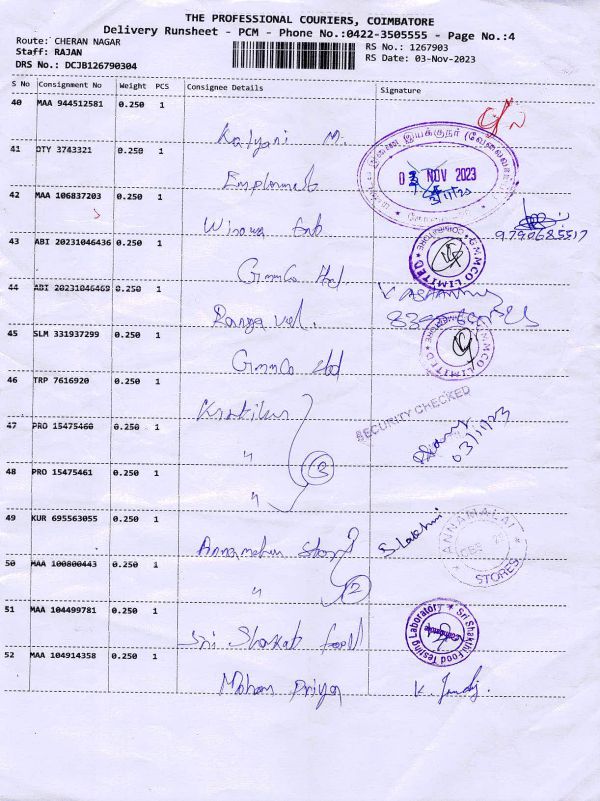 THE PROFESSIONAL COURIERS, COIMBATORE
Delivery Runsheet - PCM - Phone No.:0422-3505555 - Page No.:4
Route: CHERAN NAGAR
Staff: RAJAN
DRS No.: DCJB126790304
RS No.: 1267903
RS Date: 03-Nov-2023
S No Consignment No Weight PCS Consignee Details Signature
40 MAA 944512581 0.250 1
Kalyani M.
41 OTY 3743321 0.250 1
NOV 2023
42 MAA 106837203 0.250 1
43 ABI 20231046436 0.250 1
GmmCo ltd
COIMBATORE
GMMCO LIMITED
44 ABI 20231046469 0.250 1
Ranga vel.
45 SLM 331937299 0.250 1
GmmCo ltd
GMMCO LIMITED
46 TRP 7616920 0.250 1
SECURITY CHECKED
47 PRO 15475460 0.250 1
"
3
03/11/23
48 PRO 15475461 0.250 1
"
49 KUR 695563055 0.250 1
S. Lakshmi
ANNAMALAI
STORES
50 MAA 100800443 0.250 1
"
2
51 MAA 104499781 0.250 1
Sri Shakthi Food
Sri Shakthi Food Testing Laboratory
Coimbatore
52 MAA 104914358 0.250 1
Mohan Priya